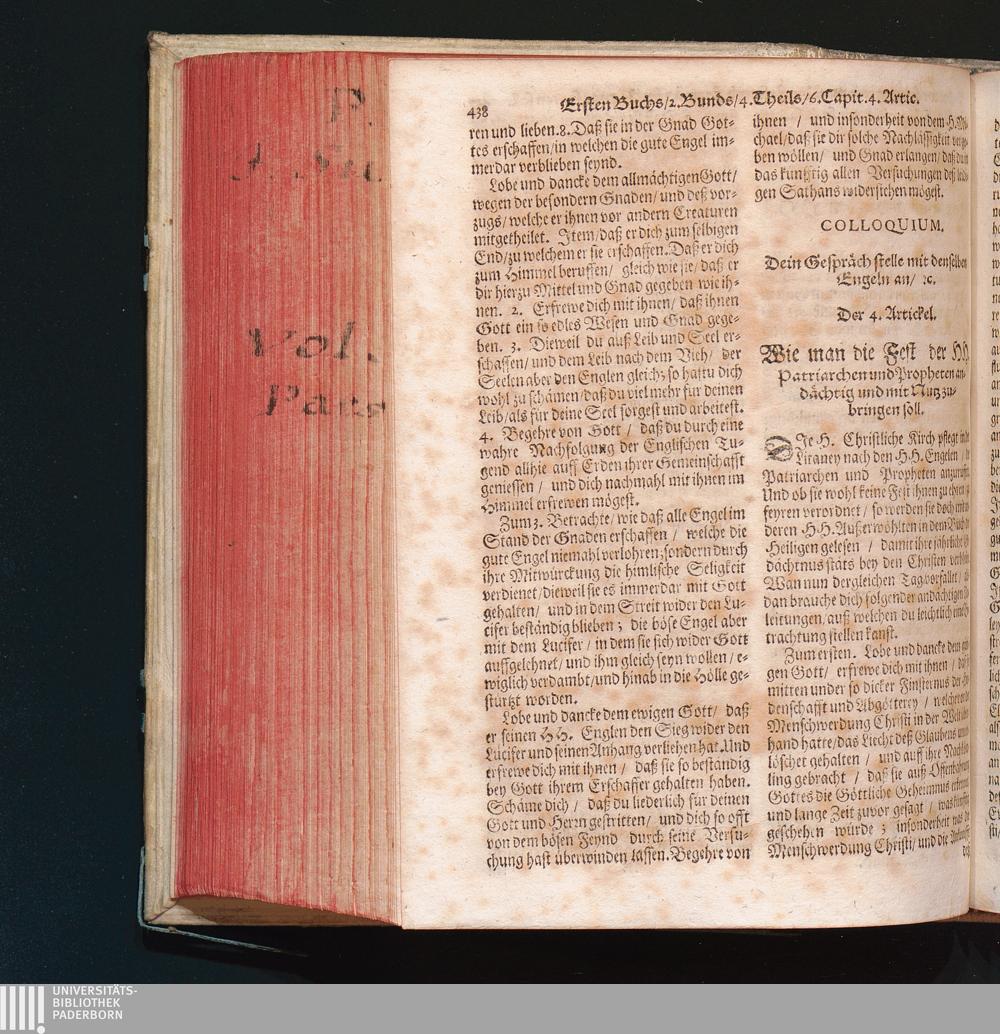 P.
Vol.
Pars
438
Ersten Buchs/2.Bunds/4.Theils/6.Capit.4. Artic.
ren und lieben.8.Daß sie in der Gnad Got-
tes erschaffen/in welchen die gute Engel im-
merdar verblieben seynd.
Lobe und dancke dem allmächtigen Gott/
wegen der besondern Gnaden/ und deß vor-
zugs/ welche er ihnen vor andern Creaturen
mitgetheilet. Item/daß er dich zum selbigen
End/zu welchem er sie erschaffen. Daß er dich
zum Himmel beruffen/ gleich wie sie/ daß er
dir hierzu Mittel und Gnad gegeben wie ih-
nen. 2. Erfrewe dich mit ihnen/ daß ihnen
Gott ein so edles Wesen und Gnad gege-
ben. 3. Dieweil du auß Leib und Seel er-
schaffen/ und dem Leib nach dem Vieh/ der
Seelen aber den Englen gleich; so hastu dich
wohl zu schämen/daß du viel mehr für deinen
Leib/als für deine Seel sorgest und arbeitest.
4. Begehre von Gott / daß du durch eine
wahre Nachfolgung der Englischen Tu-
gend allhie auff Erden ihrer Gemeinschafft
geniessen / und dich nachmahl mit ihnen im
Himmel erfrewen mögest.
Zum 3. Betrachte/ wie daß alle Engel im
Stand der Gnaden erschaffen / welche die
gute Engel niemahl verlohren; sondern durch
ihre Mitwürckung die himlische Seligkeit
verdienet/dieweil sie es immerdar mit Gott
gehalten/ und in dem Streit wider den Lu-
cifer beständig blieben; die böse Engel aber
mit dem Lucifer/ in dem sie sich wider Gott
auffgelehnet/ und ihm gleich seyn wollen/ e-
wiglich verdambt/und hinab in die Hölle ge-
stürtzt worden.
Lobe und dancke dem ewigen Gott/ daß
er seinen HH. Englen den Sieg wider den
Lucifer und seinen Anhang verliehen hat. Und
erfrewe dich mit ihnen / daß sie so beständig
bey Gott ihrem Erschaffer gehalten haben.
Schäme dich / daß du liederlich für deinen
Gott und Herrn gestritten/ und dich so offt
von dem bösen Feynd durch seine Versu-
chung hast überwinden lassen. Begehre von
ihnen / und insonderheit von dem H. Mi-
chael/daß sie dir solche Nachlässigkeit verge-
ben wöllen/ und Gnad erlangen/ daß du
das künfftig allen Versuchungen deß leidi-
gen Sathans widerstehen mögest.
COLLOQUIUM.
Dein Gespräch stelle mit denselben
Engeln an/ ꝛc.
Der 4. Artickel.
Wie man die Fest der HH.
Patriarchen und Propheten an-
dächtig und mit Nutz zu-
bringen soll.
DIe H. Christliche Kirch pflegt in
Litaney nach den HH. Engelen
Patriarchen und Propheten
Und ob sie wohl keine Fest ihnen zu ehren
feyren verordnet / so werden sie doch
deren HH. Außerwöhlten in dem Buch
Heiligen gelesen / damit ihre
dächtnus stäts bey den Christen
Wan nun dergleichen Tag vorfallet/
dan brauche dich folgender andächtigen
leitungen, auß welchen du leichtlich
trachtung stellen kanst.
Zum ersten. Lobe und dancke dem
gen Gott/ erfrewe dich mit ihnen /
mitten under so dicker Finsternus der
denschafft und Abgötterey /
Menschwerdung Christi in der Welt
hand hatte/das Liecht deß Glaubens
löschet gehalten / und auff ihre
ling gebracht / daß sie auß Offenbahrung
Gottes die Göttliche Geheimnus
und lange Zeit zuvor gesagt /
geschehen würde ; insonderheit
Menschwerdung Christi/ und die
UNIVERSITÄTS-
BIBLIOTHEK
PADERBORN